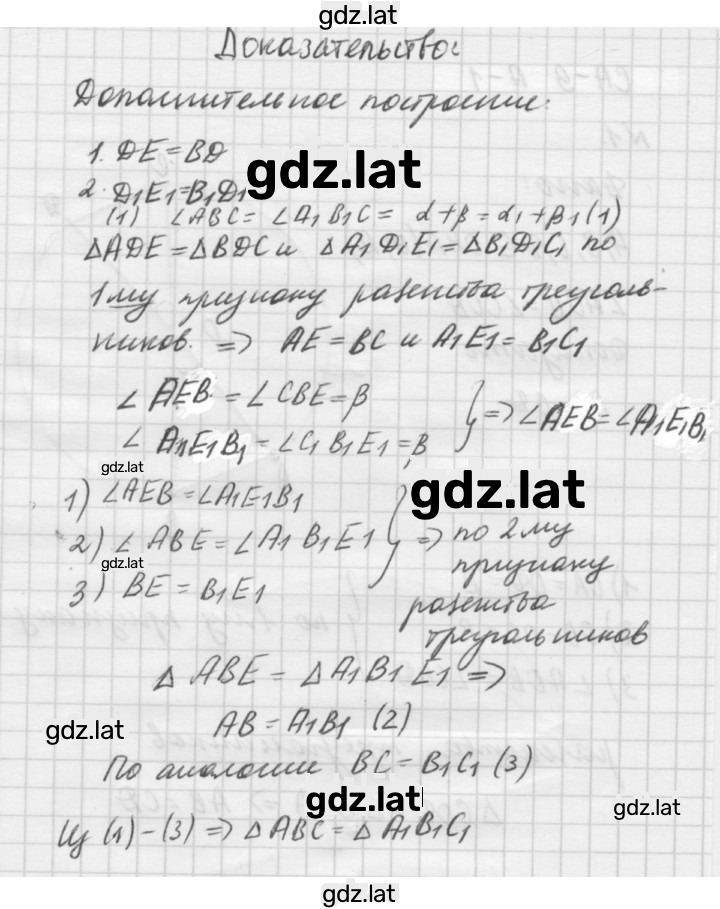 gdz.lat
Доказательство:
Дополнительное построение:
1. DE = BD
gdz.lat
2. D1E1 = B1D1
(1) ∠ABC = ∠A1B1C = α+β = α1+β1 (1)
ΔADE = ΔBDC и ΔA1D1E1 = ΔB1D1C1 по
1му признаку равенства треуголь-
ников. => AE = BC и A1E1 = B1C1
∠AEB = ∠CBE = β
∠A1E1B1 = ∠C1B1E1 = β } => ∠AEB = ∠A1E1B1
gdz.lat
gdz.lat
1) ∠AEB = ∠A1E1B1
2) ∠ABE = ∠A1B1E1 } => по 2му
gdz.lat
признаку
3) BE = B1E1
равенства
треугольников
ΔABE = ΔA1B1E1 =>
AB = A1B1 (2)
gdz.lat
По аналогии BC = B1C1 (3)
gdz.lat
gdz.lat
Из (1)-(3) => ΔABC = ΔA1B1C1
gdz.lat